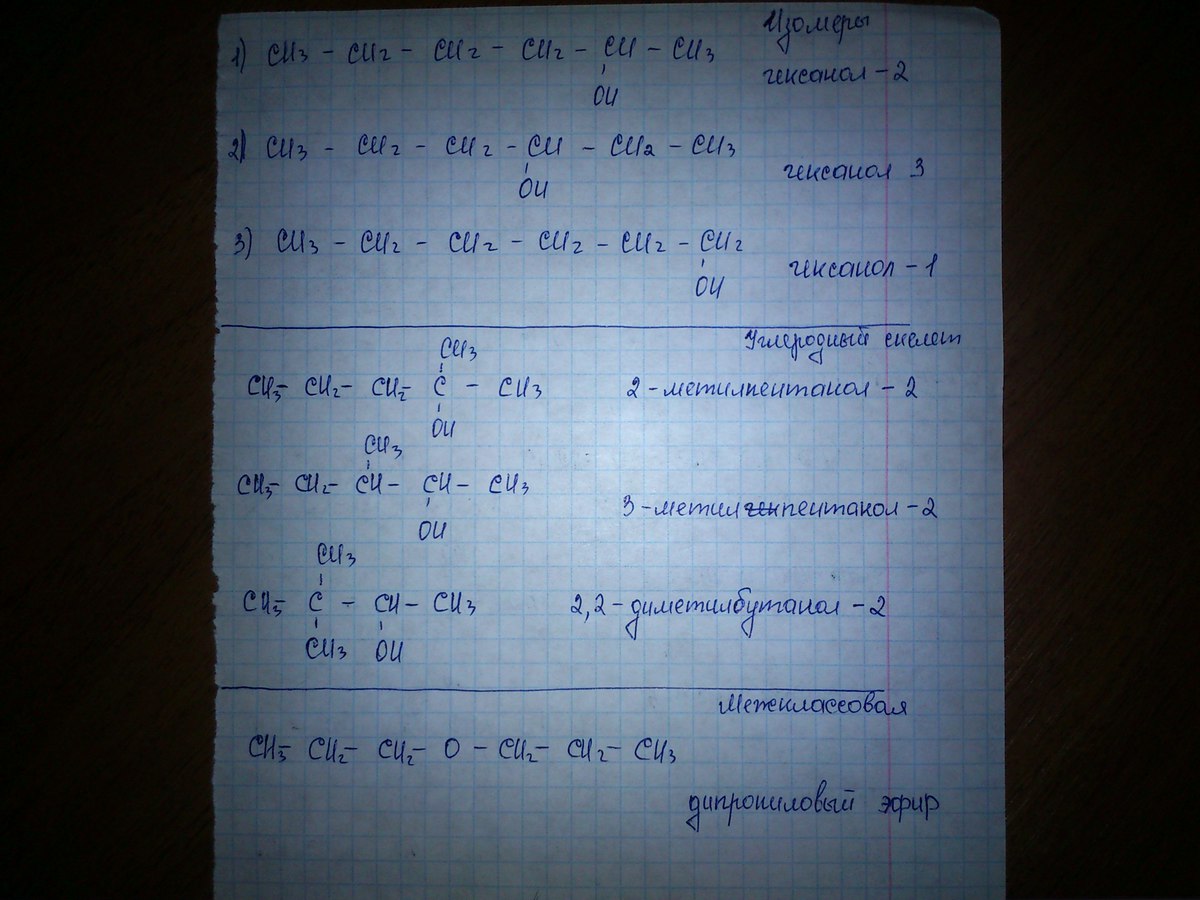 Изомеры
1) CH3 - CH2 - CH2 - CH2 - CH - CH3
OH
гексанол - 2
2) CH3 - CH2 - CH2 - CH - CH2 - CH3
OH
гексанол 3
3) CH3 - CH2 - CH2 - CH2 - CH2 - CH2
OH
гексанол - 1
Углеродный скелет
CH3
CH3 - CH2 - CH2 - C - CH3
OH
2 - метилпентанол - 2
CH3
CH3 - CH2 - CH - CH - CH3
OH
3 - метилпентанол - 2
CH3
CH3 - C - CH - CH3
CH3 OH
2,2 - диметилбутанол - 2
Межклассовая
CH3 - CH2 - CH2 - O - CH2 - CH2 - CH3
дипропиловый эфир